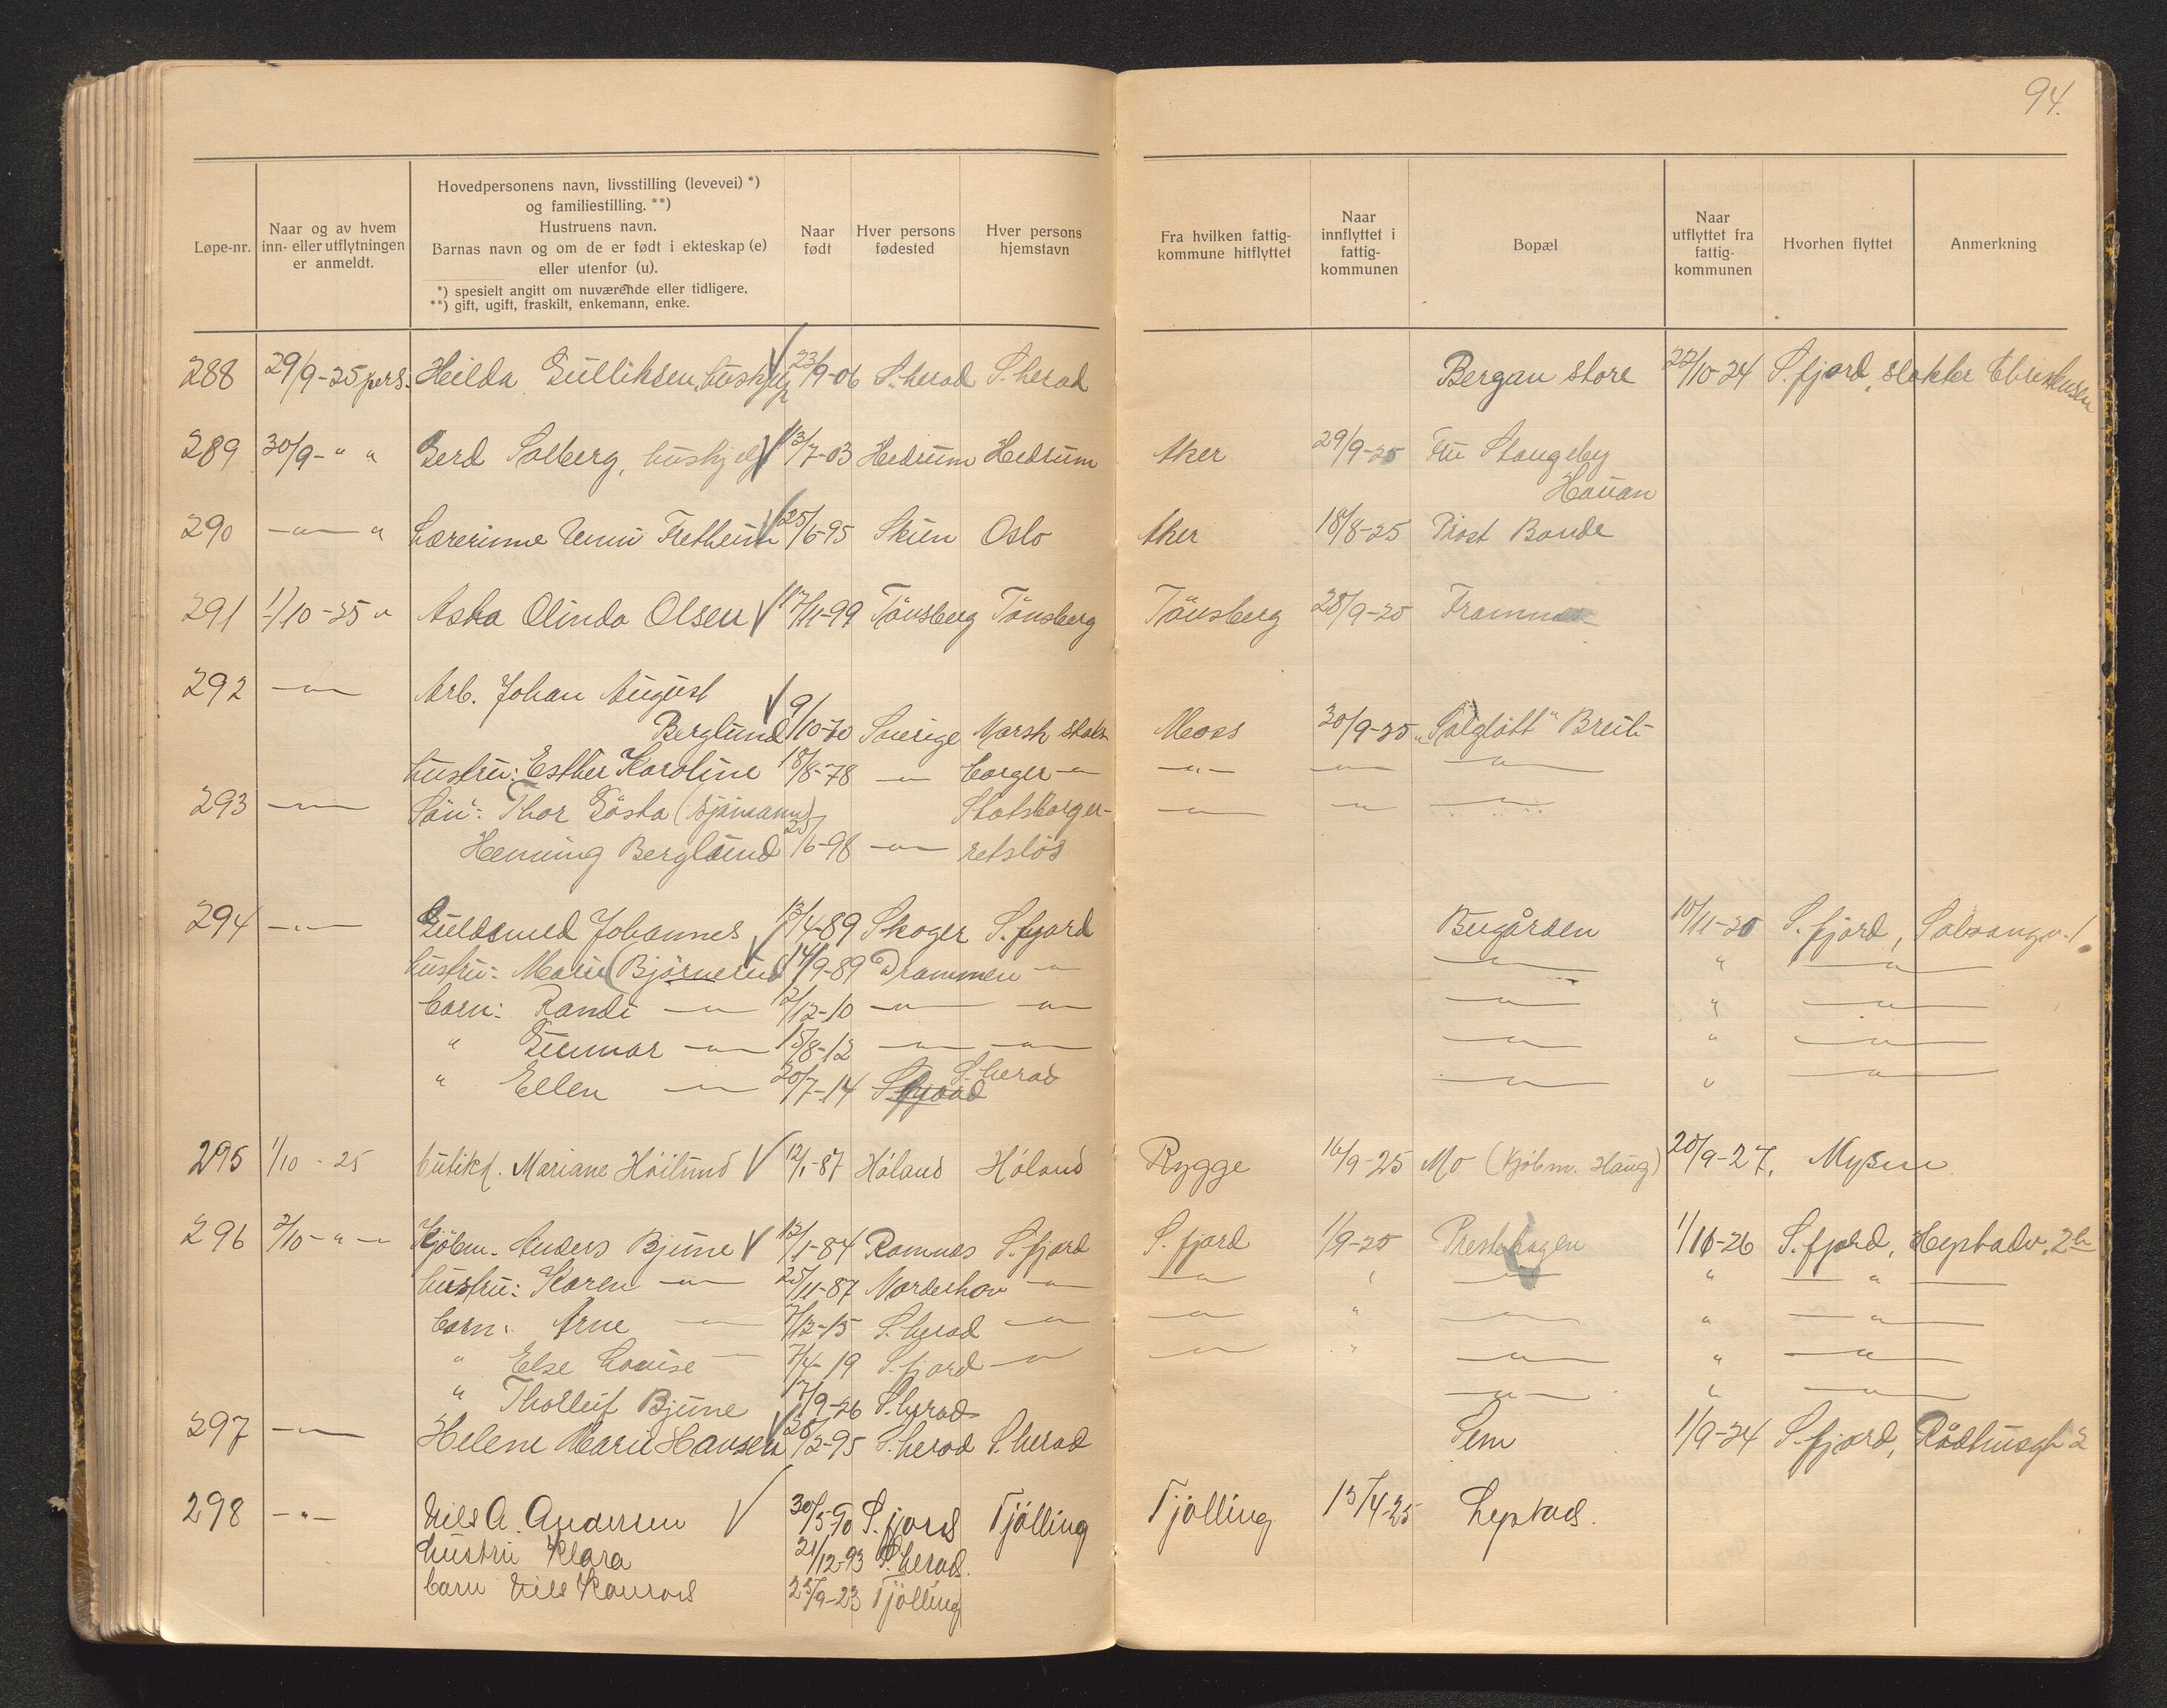 94.
Løpe-nr.
Naar og av hvem
inn- eller utflytningen
er anmeldt.
Hovedpersonens navn, livsstilling (levevei) *)
og familiestilling. **)
Hustruens navn.
Barnas navn og om de er født i ekteskap (e)
eller utenfor (u).
*) spesielt angitt om nuværende eller tidligere.
**) gift, ugift, fraskilt, enkemann, enke.
Naar
født
Hver persons
fødested
Hver persons
hjemstavn
Fra hvilken fattig-
kommune hitflyttet
Naar
innflyttet i
fattig-
kommunen
Bopæl
Naar
utflyttet fra
fattig-
kommunen
Hvorhen flyttet
Anmerkning
288 29/9-25 pers. Hilda Gulliksen, hushj. 23/9-06 S.herad S.herad Bergan store 22/10-24 S.fjord, slakter Christensen
289 30/9- " " Gerd Solberg, hushjelp 13/7-03 Hedrum Hedrum Aker 29/9-25 Fru Stangeby
Hauan
290 —"— " Lærerinne Unni Fretheim 25/6-95 Skien Oslo Aker 18/8-25 Prost Bonde
291 1/10-25 " Aska Olinda Olsen 17/11-99 Tönsberg Tönsberg Tönsberg 28/9-25 Framnæs
292 —"— Arb. Johan August
Berglund 9/10-70 Sverige Norsk stats Moss 30/9-25 "Solglött" Breili-
hustru: Esther Karoline 18/8-78 —"— borger —"— —"— —"— —"—
293 —"— Sön: Thor Gösta (sjömann) Statsborger- —"— —"— —"—
Henning Berglund 25/6-98 —"— retslös
294 —"— Guldsmed Johannes 13/4-89 Skoger S.fjord Bugården 10/11-25 S.fjord, Solvangv. 1.
hustru: Marie (Björnerud 14/9-89 Drammen —"— —"— " —"—
barn: Randi —"— 2/12-10 —"— —"— —"— " —"—
" Gunnar —"— 15/8-12 —"— —"— —"— " —"—
" Ellen —"— 20/7-14 S.fjord S.herad —"— " —"—
295 1/10-25 butikd. Mariane Höilund 12/1-87 Höland Höland Rygge 16/9-25 Mo (kjöbm. Haug) 20/9-27, Mysen.
296 2/10-"-" Kjöbm. Anders Bjune 13/1-84 Ramnes S.fjord S.fjord 1/9-25 Prestehagen 1/11-26 S.fjord, Hystadv. 2b
hustru: Karen —"— 25/11-87 Norderhov —"— —"— " —"— " —"—
barn: Arne —"— 7/12-15 S.herad —"— —"— " —"— " —"—
" Else Louise —"— 7/4-19 S.fjord —"— —"— " —"— " —"—
" Thorleif Bjune 17/9-26 S.herad —"— " —"—
297 —"— Helene Marie Hansen 28/2-95 S.herad S.herad Sem 1/9-24 S.fjord, Rådhusgt 2
298 —"— Nils A. Andersen 30/5-90 S.fjord Tjölling Tjölling 15/4-25 Lystad.
hustru Klara 21/12-93 S.herad.
barn Nils Konrad 25/9-23 Tjölling